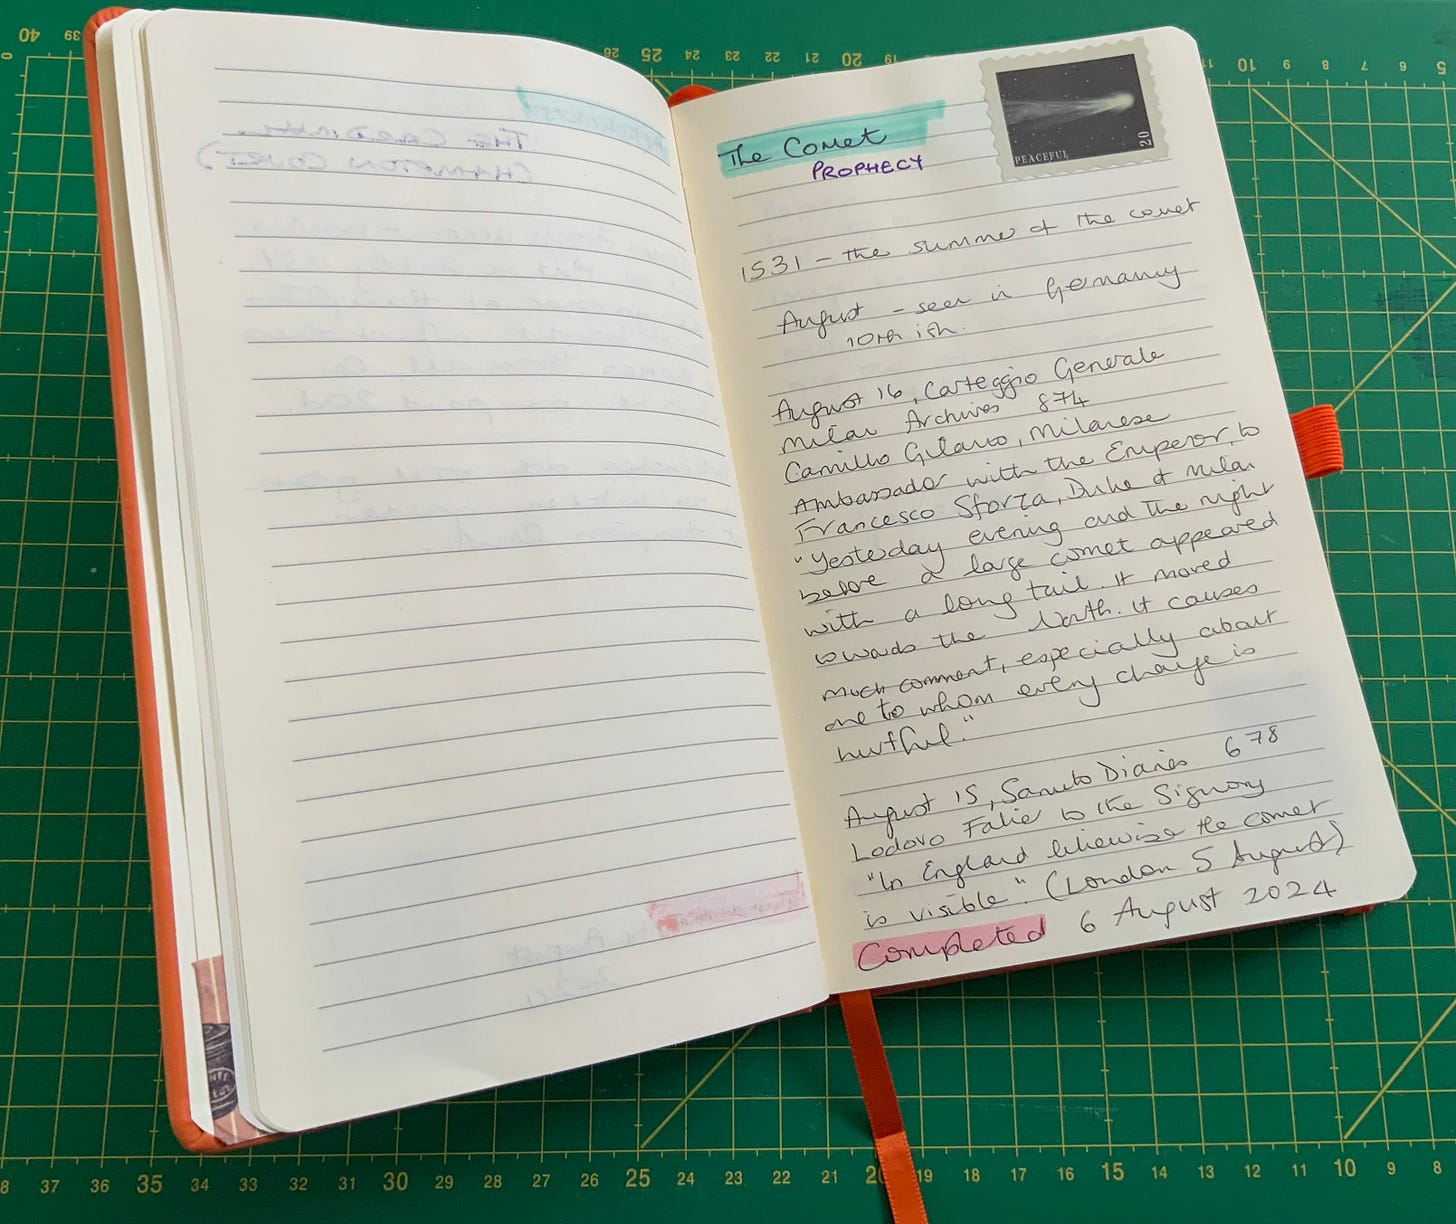 The Comet
PROPHECY
PEACEFUL
20
1531 - the summer of the comet
August - seen in Germany
10th ish.
August 16, Carteggio Generale
Milan Archives 874
Camillo Gilano, Milanese
Ambassador with the Emperor, to
Francesco Sforza, Duke of Milan
"Yesterday evening and the night
before a large comet appeared
with a long tail. It moved
towards the North. It causes
much comment, especially about
one to whom every change is
hurtful."
August 15, Sanuto Diaries 678
Lodovo Falie to the Signory
"In England likewise the comet
is visible". (London 5 August)
Completed 6 August 2024